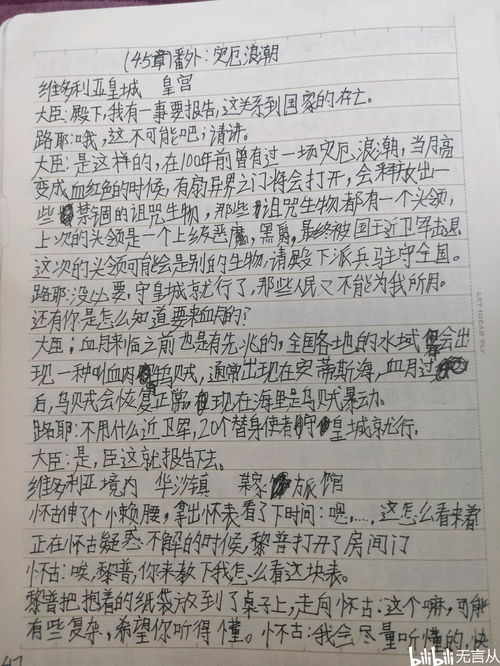 (45章)番外:灾厄浪潮
维多利亚皇城 皇宫
大臣:殿下,我有一事要报告,这关系到国家的存亡。
路耶:哦,这不可能吧;请讲。
大臣:是这样的,在100年前曾有过一场灾厄浪潮,当月亮
变成血红色的时候,有扇异界之门将会打开,会释放出一
些禁锢的诅咒生物,那些诅咒生物都有一个头领,
上次的头领是一个上级恶魔,黑袅,最终被国王近卫军击退
这次的头领可能会是别的生物,请殿下派兵马主守全国。
路耶:没必要,守皇城就行了,那些人民又不能为我所用。
还有你是怎么知道要来血月的?
大臣;血月来临之前也是有先兆的,全国各地的水域会出
现一种叫血肉乌贼,通常出现在安蒂斯海,血月过
后,乌贼会恢复正常,现在海里是乌贼暴动。
路耶:不用什么近卫军,20个替身使者守皇城就行。
大臣:是,臣这就报告下去。
维多利亚境内 华沙镇 某家旅馆
怀古伸了个小懒腰,拿出怀表看了下时间:嗯,....,这怎么看来着!
正在怀古疑惑不解的时候,黎普打开了房间门
怀古:唉,黎普,你来教下我怎么看这块表。
黎普把抱着的纸袋放到了桌子上,走向怀古:这个嘛,可能
有些复杂,希望你听得懂。怀古:我会尽量听懂的,快
47
LET DREAM FLY
bilibili 无言从